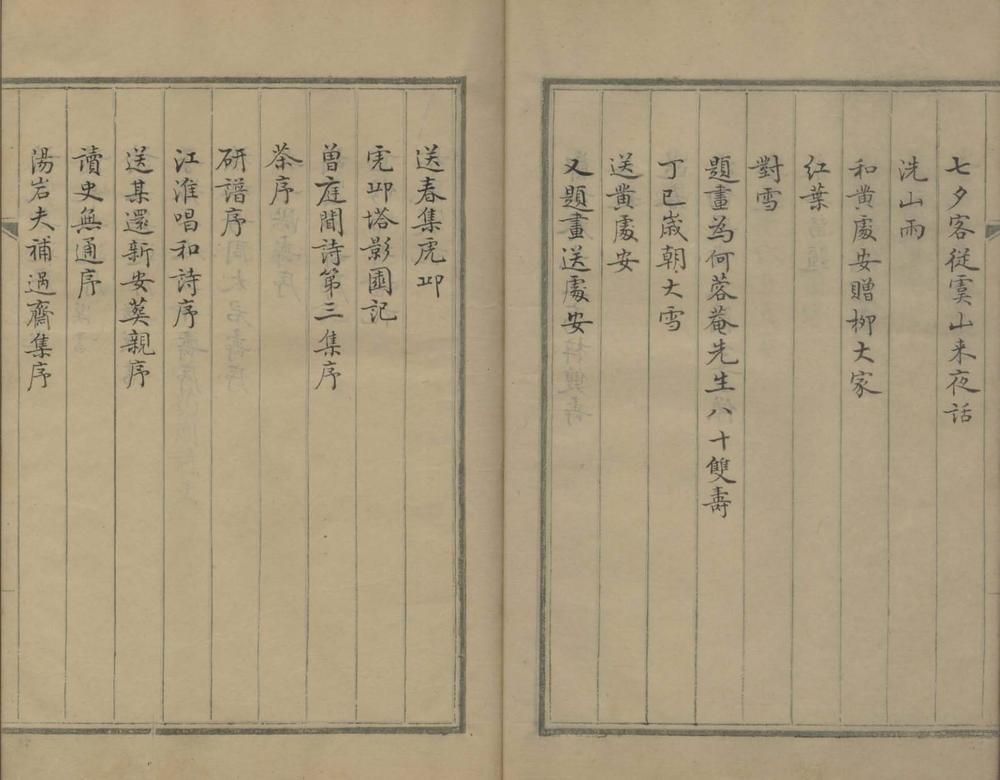 七夕客從虞山来夜話
洗山雨
和黄處安贈柳大家
紅葉
對雪
題畫為何蓉菴先生八十雙壽
丁巳嵗朝大雪
送黄處安
又題畫送處安
送春集虎邱
虎邱塔影園記
曽庭聞詩第三集序
茶序
研譜序
江淮唱和詩序
送某還新安葬親序
讀史無通序
湯岩夫補過齋集序